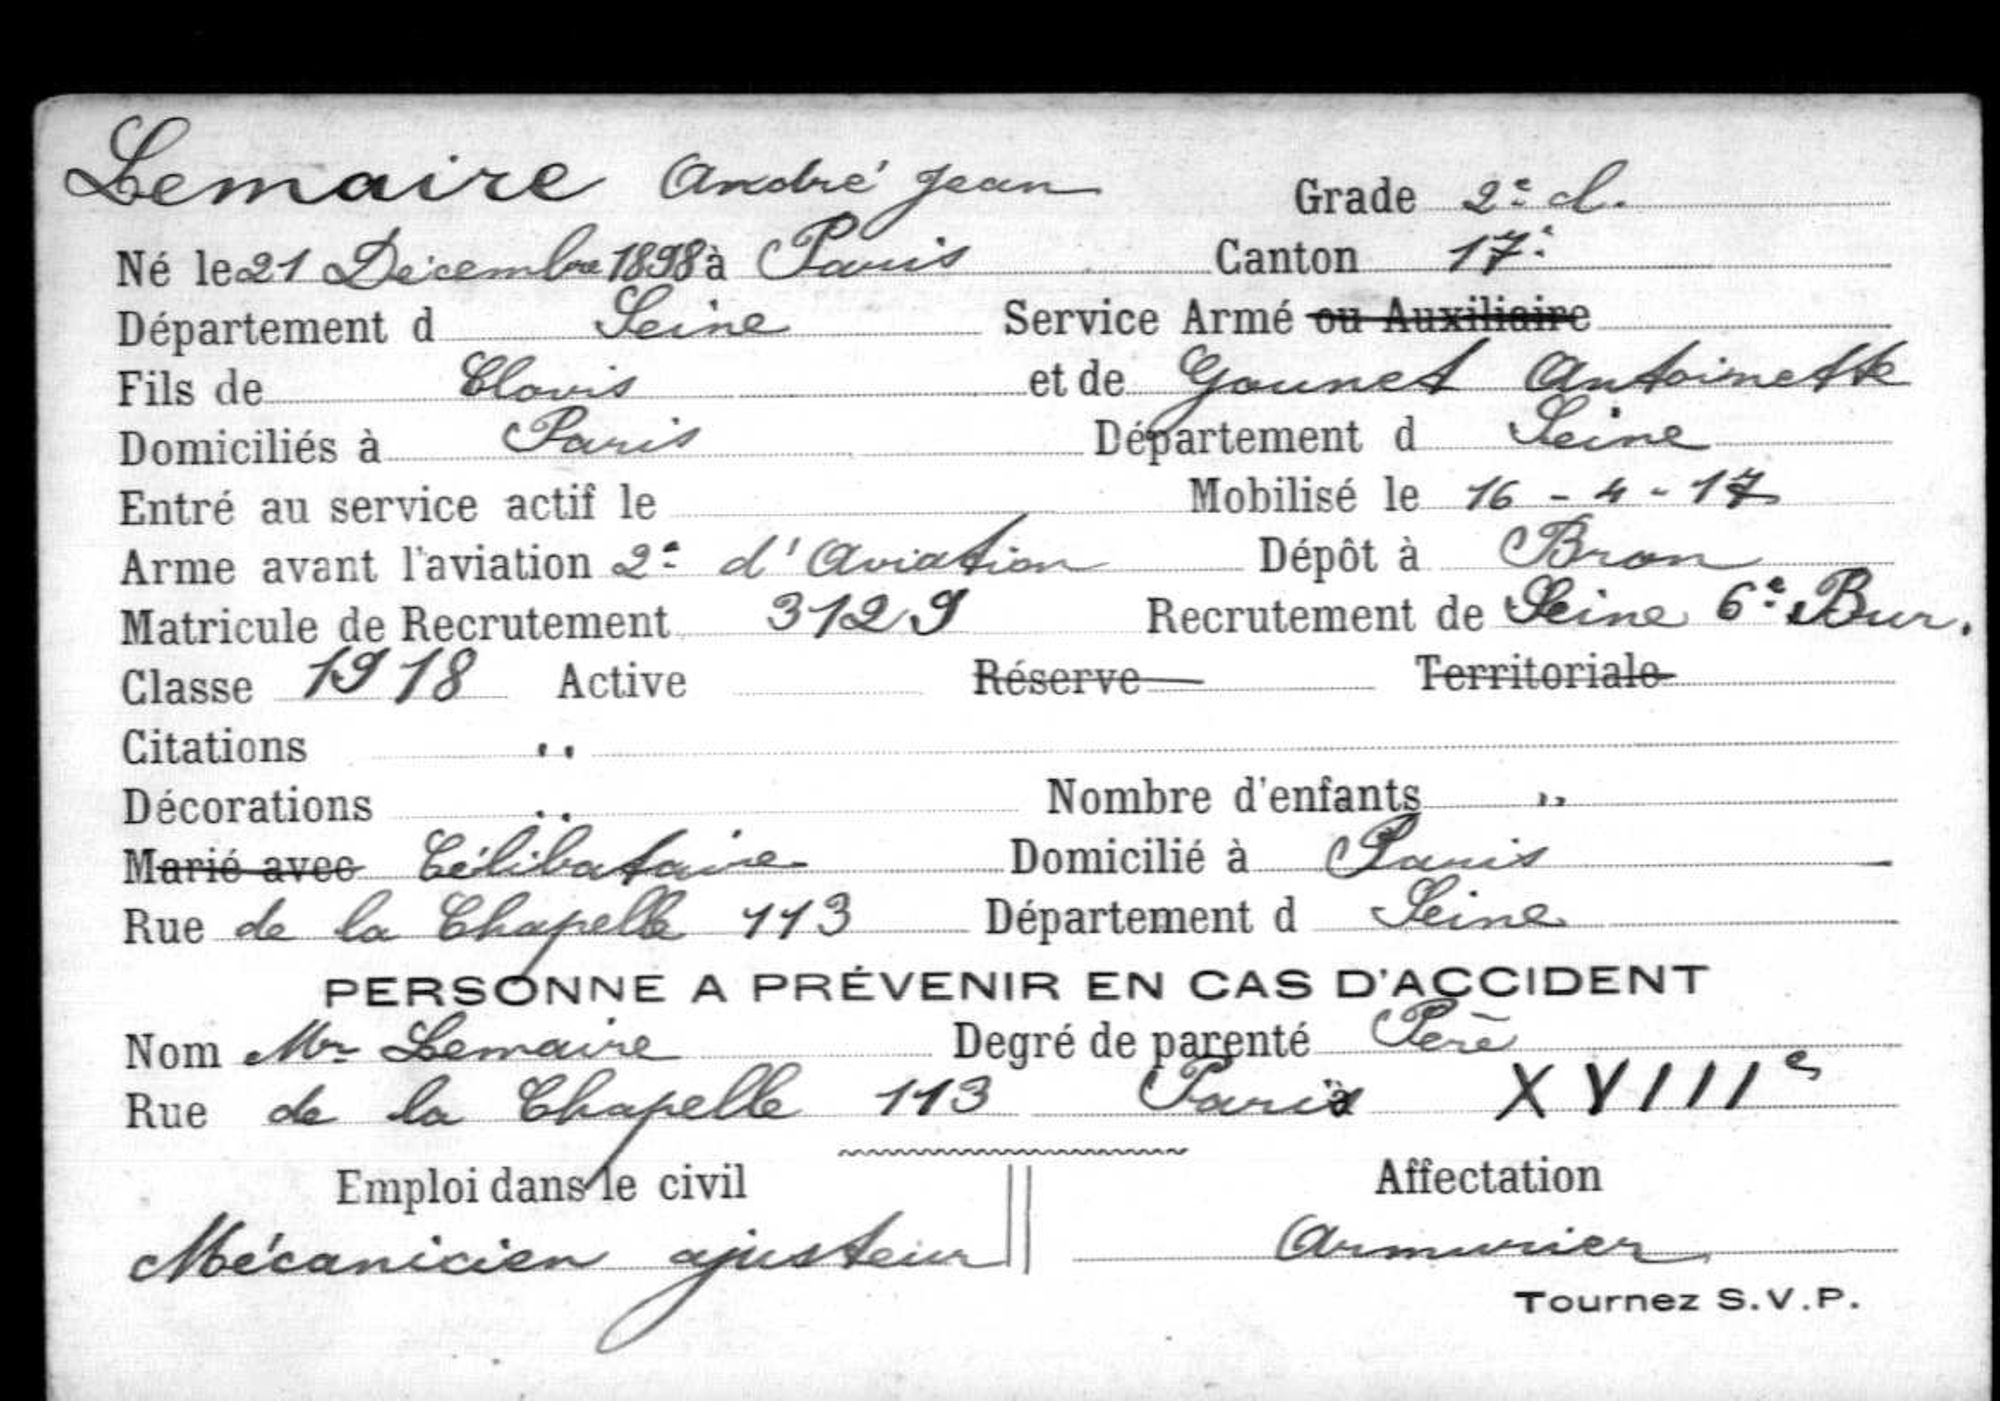 Lemaire André Jean Grade 2e cl.
Né le 21 Décembre 1898 à Paris Canton 17e
Département d Seine Service Armé ou Auxiliaire
Fils de Clovis et de Gounet Antoinette
Domiciliés à Paris Département d Seine
Entré au service actif le Mobilisé le 16 - 4 - 17
Arme avant l'aviation 2e d'Aviation Dépôt à Bron
Matricule de Recrutement 3129 Recrutement de Seine 6e Bur.
Classe 1918 Active Réserve Territoriale
Citations "
Décorations " Nombre d'enfants "
Marié avec Célibataire Domicilié à Paris
Rue de la Chapelle 113 Département d Seine
PERSONNE A PRÉVENIR EN CAS D'ACCIDENT
Nom Mr Lemaire Degré de parenté Père
Rue de la Chapelle 113 Paris XVIIIe
Emploi dans le civil Affectation
Mécanicien ajusteur Armurier
Tournez S.V.P.